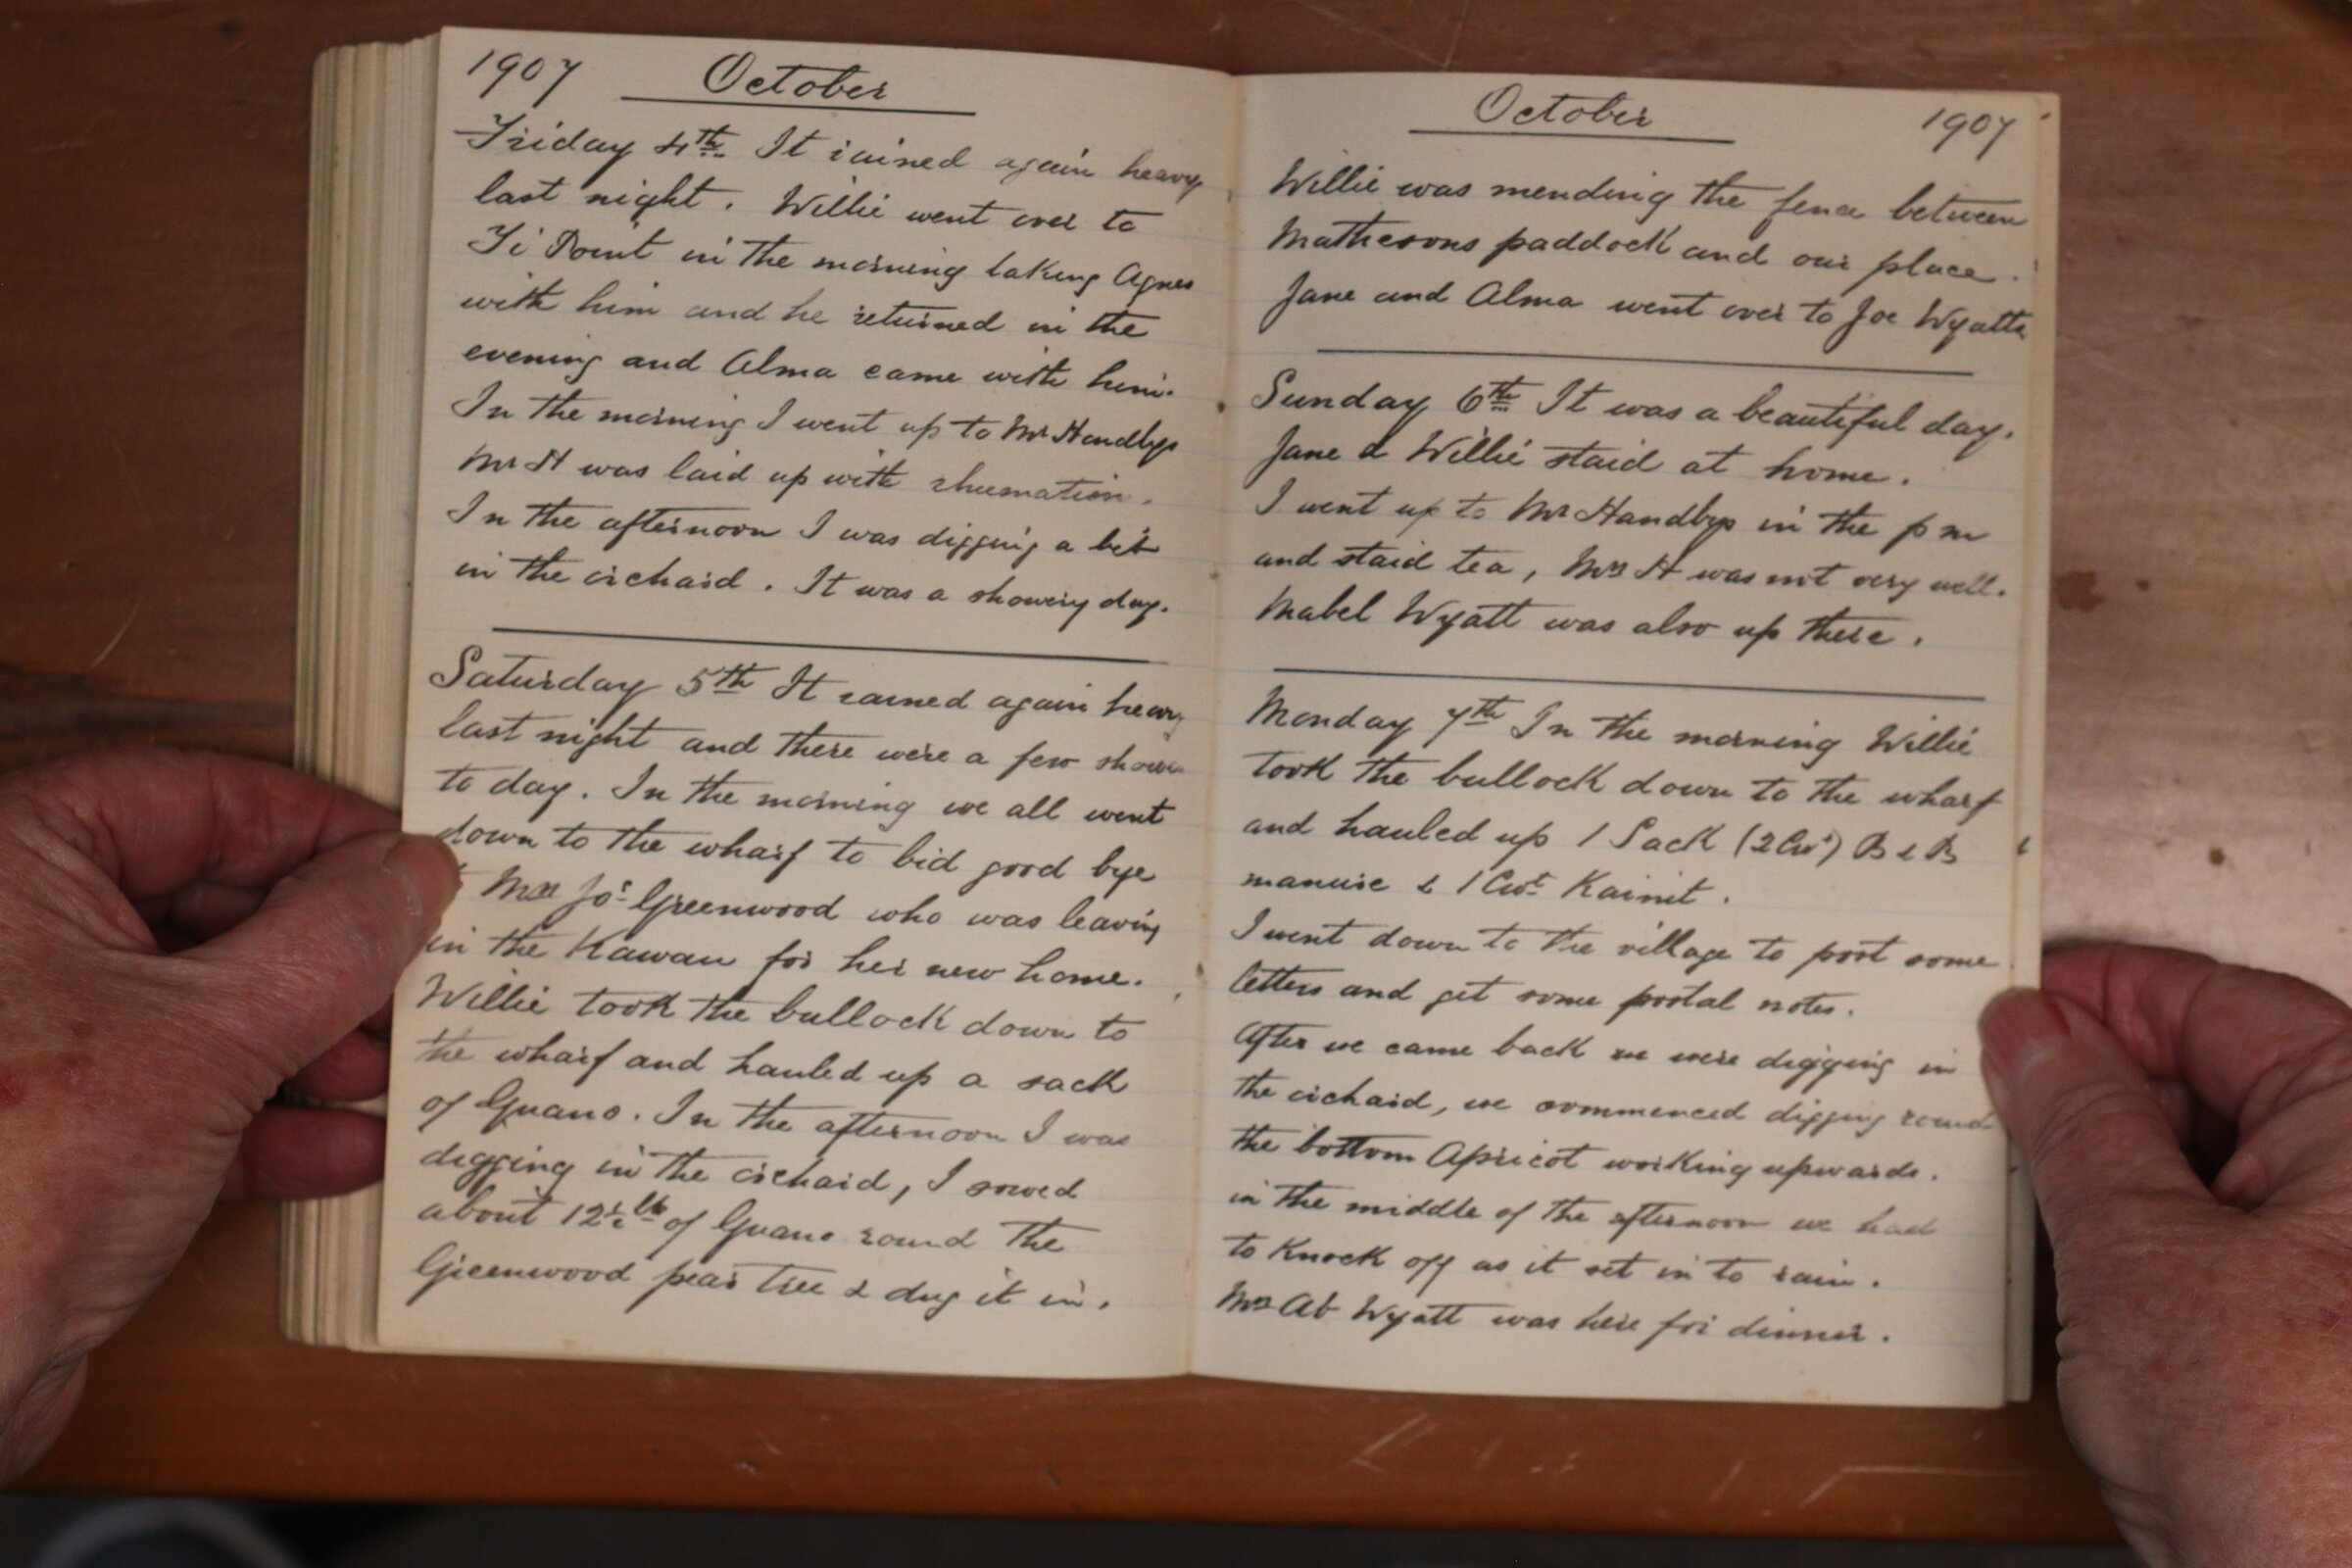 1907 October
Friday 4th It rained again heavy
last night. Willie went over to
Ti Point in the morning taking Agnes
with him and he returned in the
evening and Alma came with him.
In the morning I went up to Mr Handbys
Mr H was laid up with rhumatism.
In the afternoon I was digging a bit
in the orchard. It was a showery day.
Saturday 5th It rained again heavy
last night and there were a few showers
to day. In the morning we all went
down to the wharf to bid good bye
Mrs Jos Greenwood who was leaving
in the Kawau for her new home.
Willie took the bullock down to
the wharf and hauled up a sack
of Guano. In the afternoon I was
digging in the orchard, I sowed
about 12½ lb of Guano round the
Greenwood pear tree & dug it in.
October 1907
Willie was mending the fence between
Mathesons paddock and our place.
Jane and Alma went over to Joe Wyatts
Sunday 6th It was a beautiful day.
Jane & Willie staid at home.
I went up to Mr Handbys in the pm
and staid tea, Mrs H was not very well.
Mabel Wyatt was also up there.
Monday 7th In the morning Willie
took the bullock down to the wharf
and hauled up 1 Sack (2 Cwt) B & B
manure & 1 Cwt Kainit.
I went down to the village to post some
letters and get some postal notes.
After we came back we were digging in
the orchard, we commenced digging round
the bottom Apricot working upwards.
in the middle of the afternoon we had
to Knock off as it set in to rain.
Mrs Ab Wyatt was here for dinner.